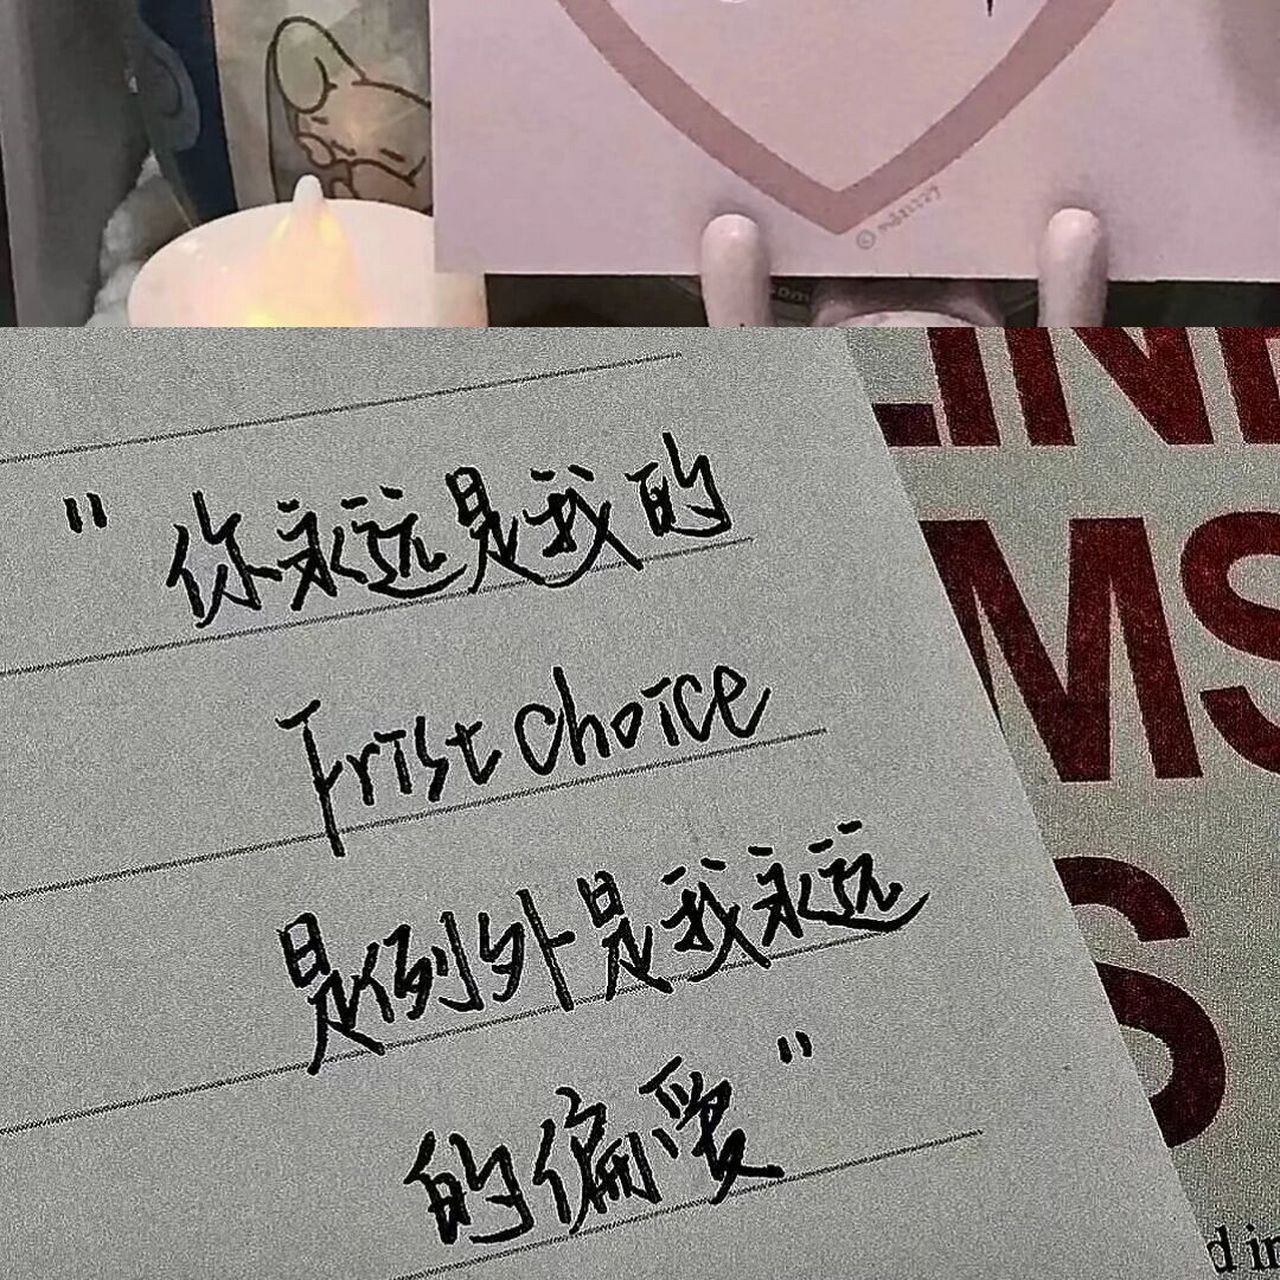 "你永远是我的
Frist choice
是例外是我永远
的偏爱"
LINE
MS
S
d in